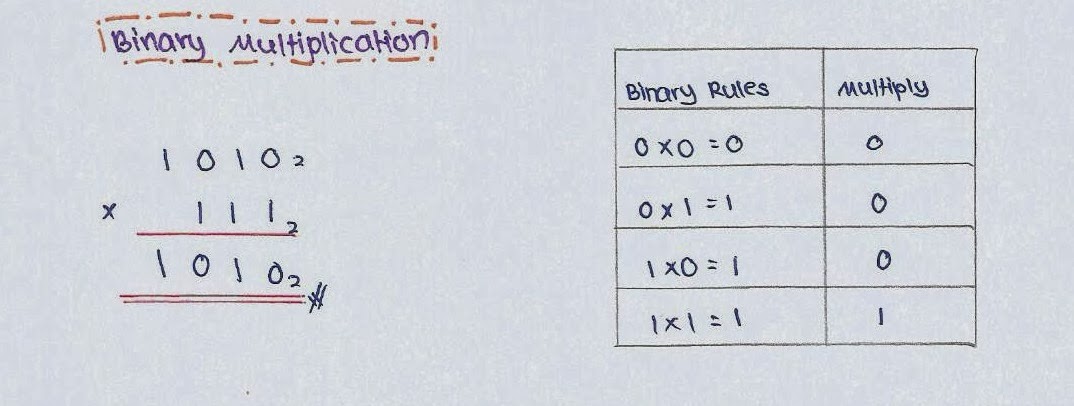 Binary Multiplication
1 0 1 0 ₂
x 1 1 1 ₂
1 0 1 0 ₂
Binary Rules Multiply
0 x 0 = 0 0
0 x 1 = 1 0
1 x 0 = 1 0
1 x 1 = 1 1